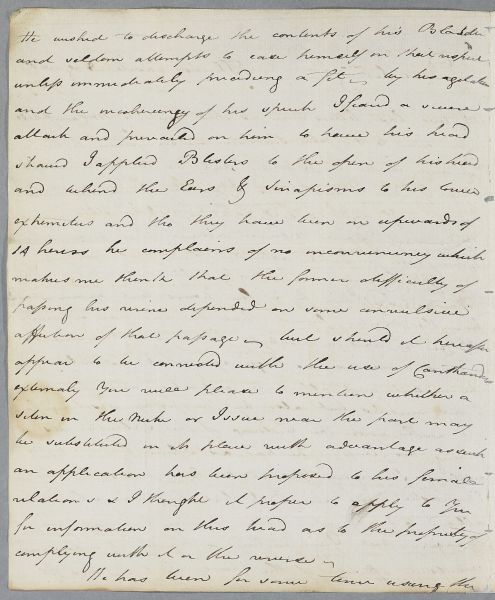 He wished to discharge the contents of his Bladder
and seldom attempts to ease himself in that respect
unless immediately preceding a fit – by his agitation
and the incoherency of his speech I feard a severe
attack and prevailed on him to have his head
shaved I applied Blisters to the open of his head
and behind the Ears & Sinapisms to his lower
extremities and tho they have been on upwards of
14 hours he complains of no inconveniency which
makes me think that the former difficulty of
passing his urine depended on some convulsive
affection of that passage – but should it hereafter
appear to be connected with the use of Cantharides
externaly You will please to mention whether a
seton in the Neck or Issue near the part may
be substituted in its place with advantage as such
an application has been proposed to his female
relations & I thought it proper to apply to You
for information on this head as to the propriety of
complying with it or the reverse –
He has been for some time using the